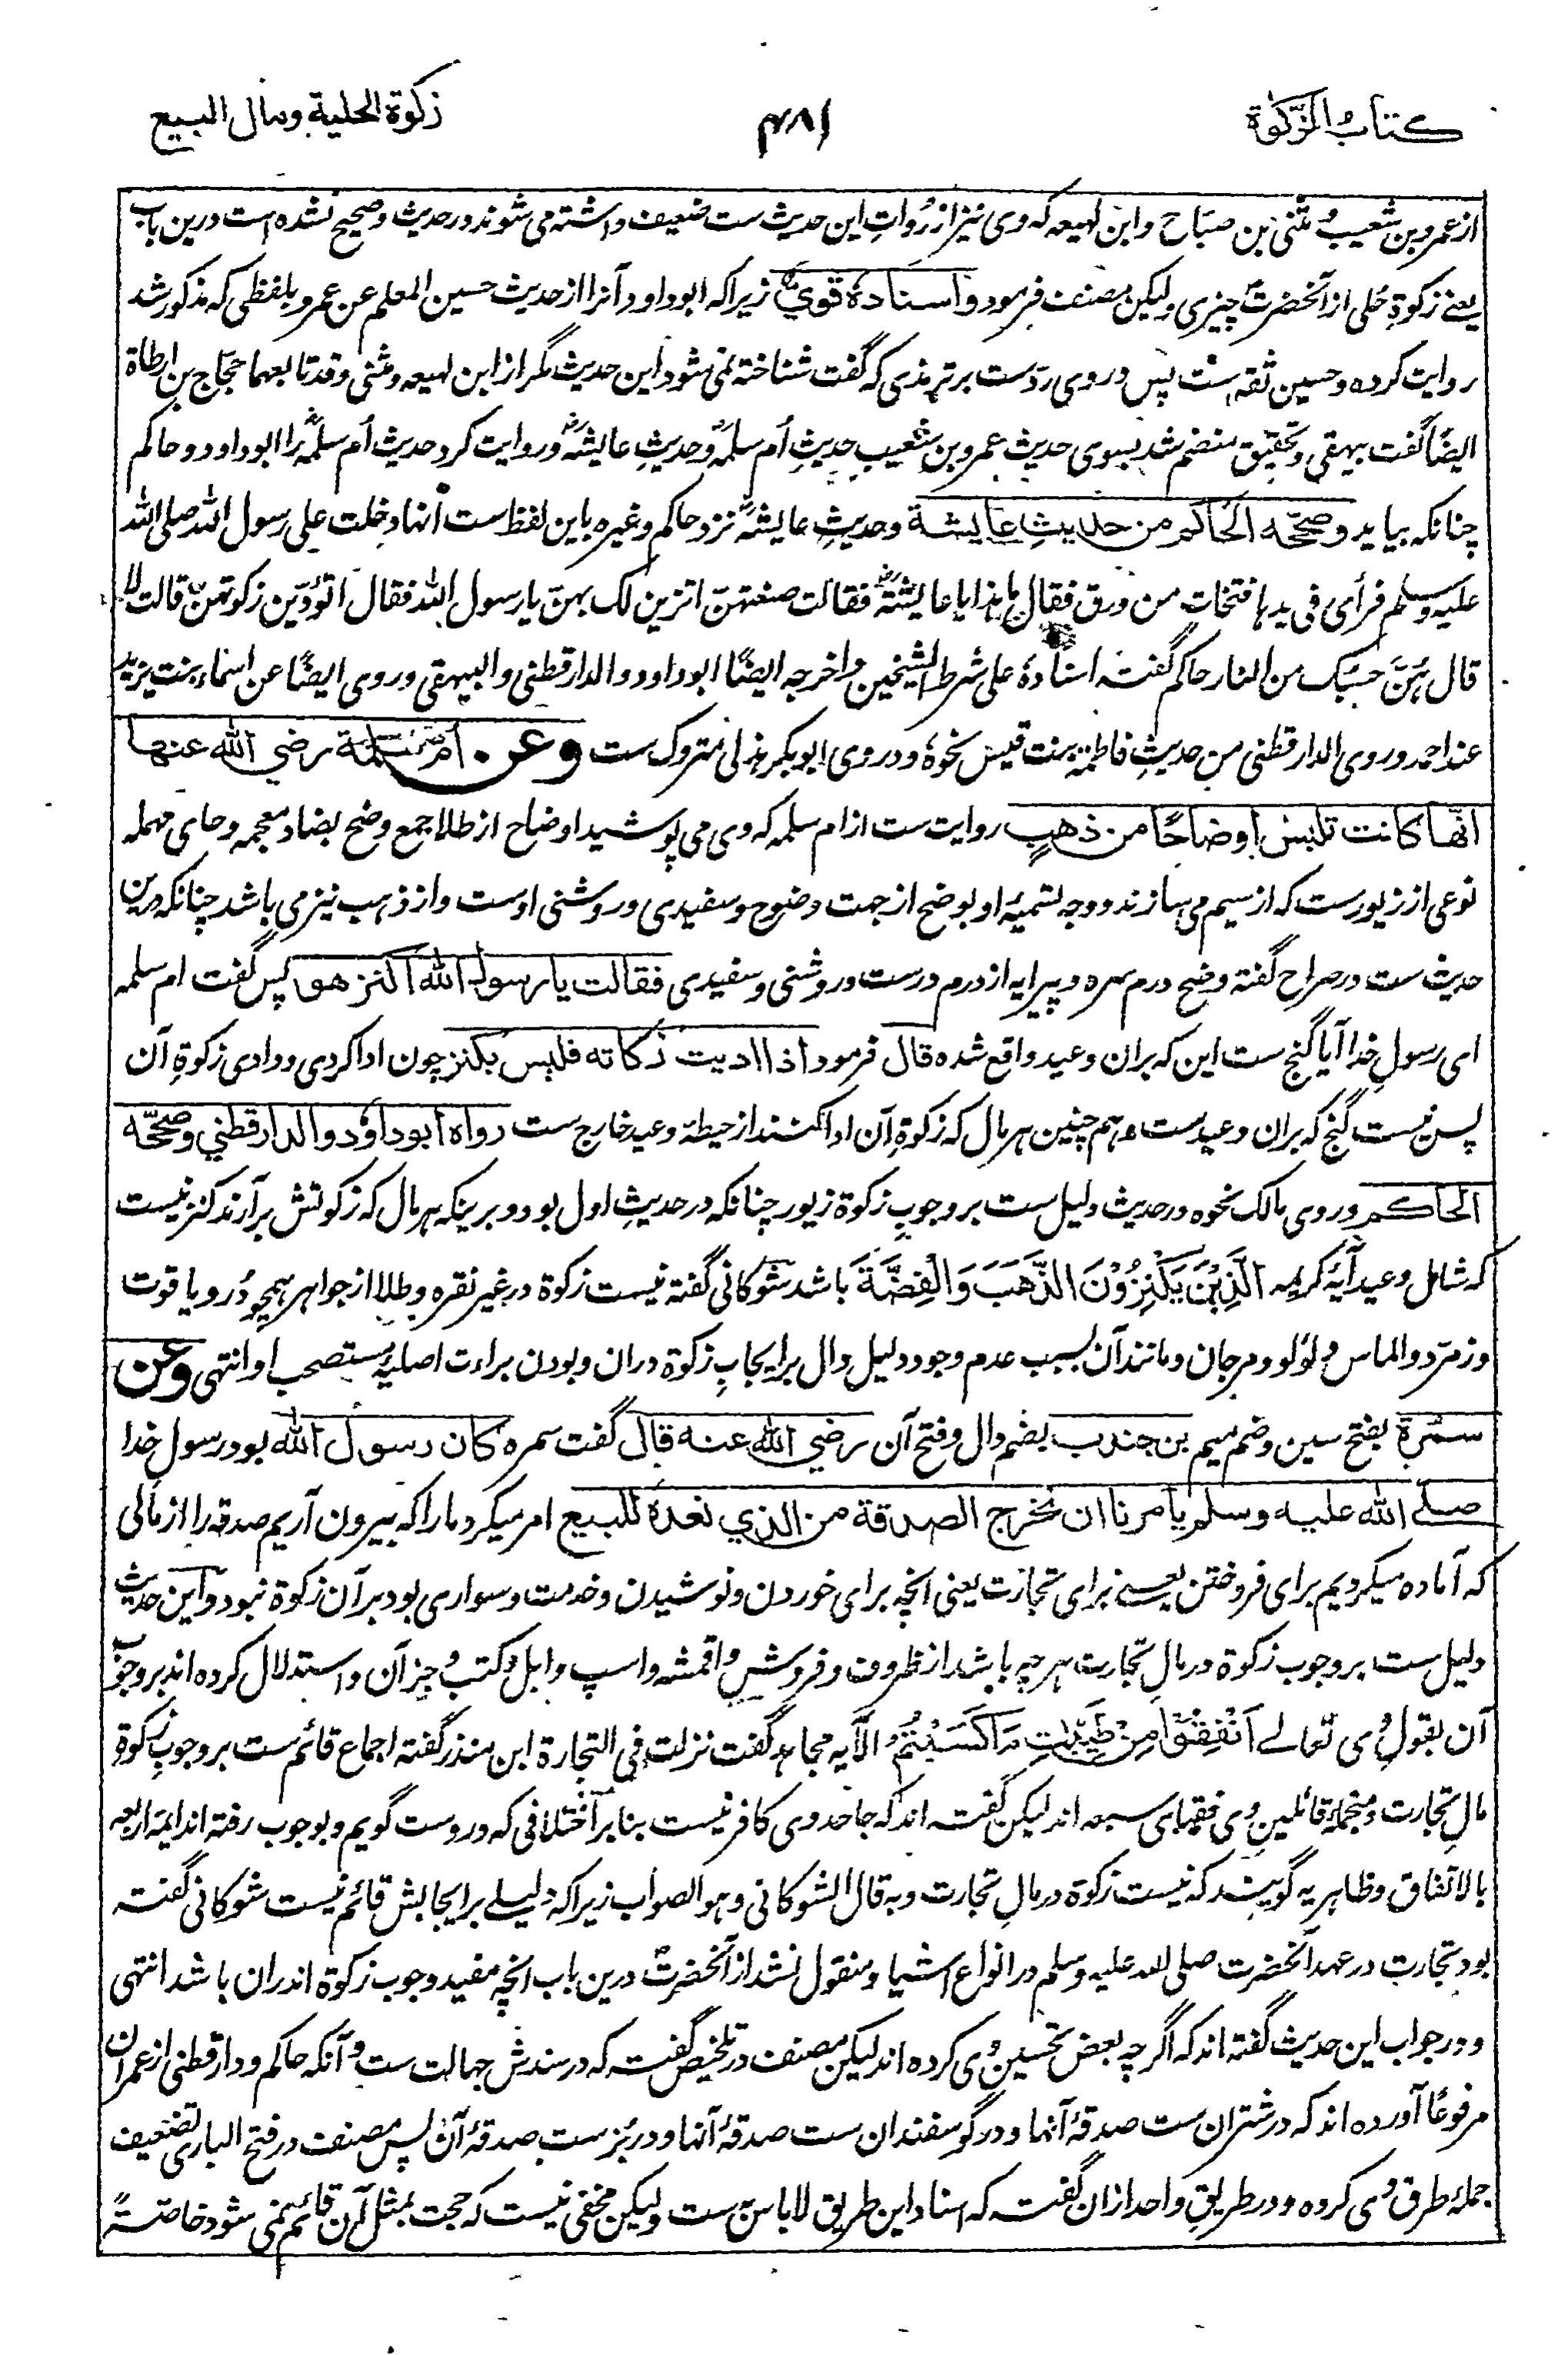 كتاب الزكوة
۴۸۱
زكوة الحلية ومال البيع
از عمرو بن شعیب مثنی بن صباح و ابن لهیعه که وی نیز از رُواتِ این حدیث ست ضعیف داشته می شوند در حدیث و صحیح نشده است درین باب
یعنے زکوةِ حُلی از آنحضرت چیزی ولیکن مصنف فرمود و اسناده قوي زیرا که ابوداود آنرا از حدیث حسین المعلم عن عمرو بلفظی که مذکور شد
روایت کرده و حسین ثقه است پس در وی ردّست بر ترمذی که گفت شناخته نمی شود این حدیث مگر از ابن لهیعه و مثنی و قد تابعهما حجّاج بن ارطاة
ایضًا گفت بیهقی و تحقیق منضم شد بسوی حدیث عمرو بن شعیب حدیثِ اُم سلمہؓ و حدیثِ عایشہؓ و روایت کرد حدیث اُم سلمہؓ را ابوداود و حاکم
چنانکه بیاید و صححه الحاكم من حديثِ عايشة و حدیثِ عایشہؓ نزد حاکم و غیره باین لفظ ست اٗنها دخلت علی رسول الله صلی الله
علیه وسلم فرأی فی یدها فتخاتٍ من ورق فقال ما هذا یا عایشةؓ فقالت صنعتهنّ اتزین لک بهنّ یا رسول الله فقال اتؤدّین زکوتهنّ قالت لا
قال هنّ حسبک من النار حاکم گفته اسنادهٗ علی شرط الشیخین و اخرجه ایضًا ابوداود و الدارقطنی و البیهقی و روی ایضًا عن اسماء بنت یزید
عند احمد و روی الدارقطنی من حدیثِ فاطمة بنت قیس نحوهٗ و در وی ابوبکر هذلی متروک ست وعن أم سلمة رضي الله عنها
انّها كانت تلبس اوضاحًا من ذهبٍ روایت ست از ام سلمه که وی می پوشید اوضاح از طلا جمع وضح بضاد معجمه و حای مهمله
نوعی از زیورست که از سیم می سازند و وجه تسمیۂ او بوضح از جهت وضوح و سفیدی و روشنی اوست و از ذهب نیز می باشد چنانکه درین
حدیث ست در صراح گفته وضح درم سره و پیرایه از درم درست و روشنی و سفیدی فقالت يا رسول الله اكنز هو پس گفت ام سلمه
ای رسولِ خدا آیا گنج ست این که بران وعید واقع شده قال فرمود اذا اديت زكاته فليس بكنز چون ادا کردی و دادی زکوةِ آن
پس نیست گنج که بران وعید ست و هم چنین هر مال که زکوةِ آن ادا کنند از حیطۂ وعید خارج ست رواه أبوداؤد والدارقطني وصححه
الحاكم و روی مالک نحوه و در حدیث دلیل ست بر وجوبِ زکوة زیور چنانکه در حدیثِ اول بود و برینکه هر مال که زکوتش برآرند کنز نیست
که شامل وعید آیۂ کریمہ الَّذِيْنَ يَكْنِزُوْنَ الذَّهَبَ وَالْفِضَّةَ باشد شوکانی گفته نیست زکوة در غیر نقره و طلا از جواهر همچو دُر و یاقوت
و زمرّد و الماس و لؤلؤ و مرجان و مانند آن بسبب عدم وجود دلیل دال بر ایجابِ زکوة دران و بودن براءت اصلیه مستصحب او انتهی وعن
سمُرة بفتح سین و ضم میم بن جندب بضم دال و فتح آن رضي الله عنه قال گفت سمره كان رسول الله بود رسولِ خدا
صلے الله عليه وسلم يأمرنا ان نخرج الصدقة من الذي نعده للبيع امر میکرد ما را که بیرون آریم صدقه را از مالی
که آماده میکردیم برای فروختن یعنے برای تجارت یعنی آنچه برای خوردن و نوشیدن و خدمت و سواری بود بر آن زکوة نبود و این حدیث
دلیل ست بر وجوب زکوة در مالِ تجارت هر چه باشد از ظروف و فروش و اقمشه و اسپ و ابل و کتب و جز آن و استدلال کرده اند بر وجوب
آن بقول وی تعالے اَنْفِقُوْا مِنْ طَيِّبٰتِ مَا كَسَبْتُمْ الآیه مجاهد گفت نزلت فی التجارة ابن منذر گفته اجماع قائم ست بر وجوب زکوةِ
مالِ تجارت و منجملۂ قائلینِ وی فقهای سبعه اند لیکن گفته اند که جاحد وی کافر نیست بنا بر اختلافی که دروست گویم و بوجوب رفته اند ایمۂ اربعه
بالاتفاق و ظاهریه گویند که نیست زکوة در مالِ تجارت و به قال الشوکانی و هو الصواب زیرا که دلیلے بر ایجابش قائم نیست شوکانی گفته
بود تجارت در عهد آنحضرت صلی الله علیه وسلم در انواع اشیا و منقول نشد از آنحضرتؐ درین باب آنچه مفید وجوب زکوة اندران باشد انتهی
و در جواب این حدیث گفته اند که اگرچه بعض تحسین وی کرده اند لیکن مصنف در تلخیص گفته که در سندش جهالت ست و آنکه حاکم و دارقطنی از عمران
مرفوعًا آورده اند که در شتران ست صدقۂ آنها و در گوسفندان ست صدقۂ آنها و در بُز ست صدقۂ آن پس مصنف در فتح الباری تضعیف
جملۂ طرق وی کرده و در طریقِ واحد ازان گفته که اسناد این طریق لاباس ست ولیکن مخفی نیست که حجت بمثل آن قائم نمی شود خاصةً